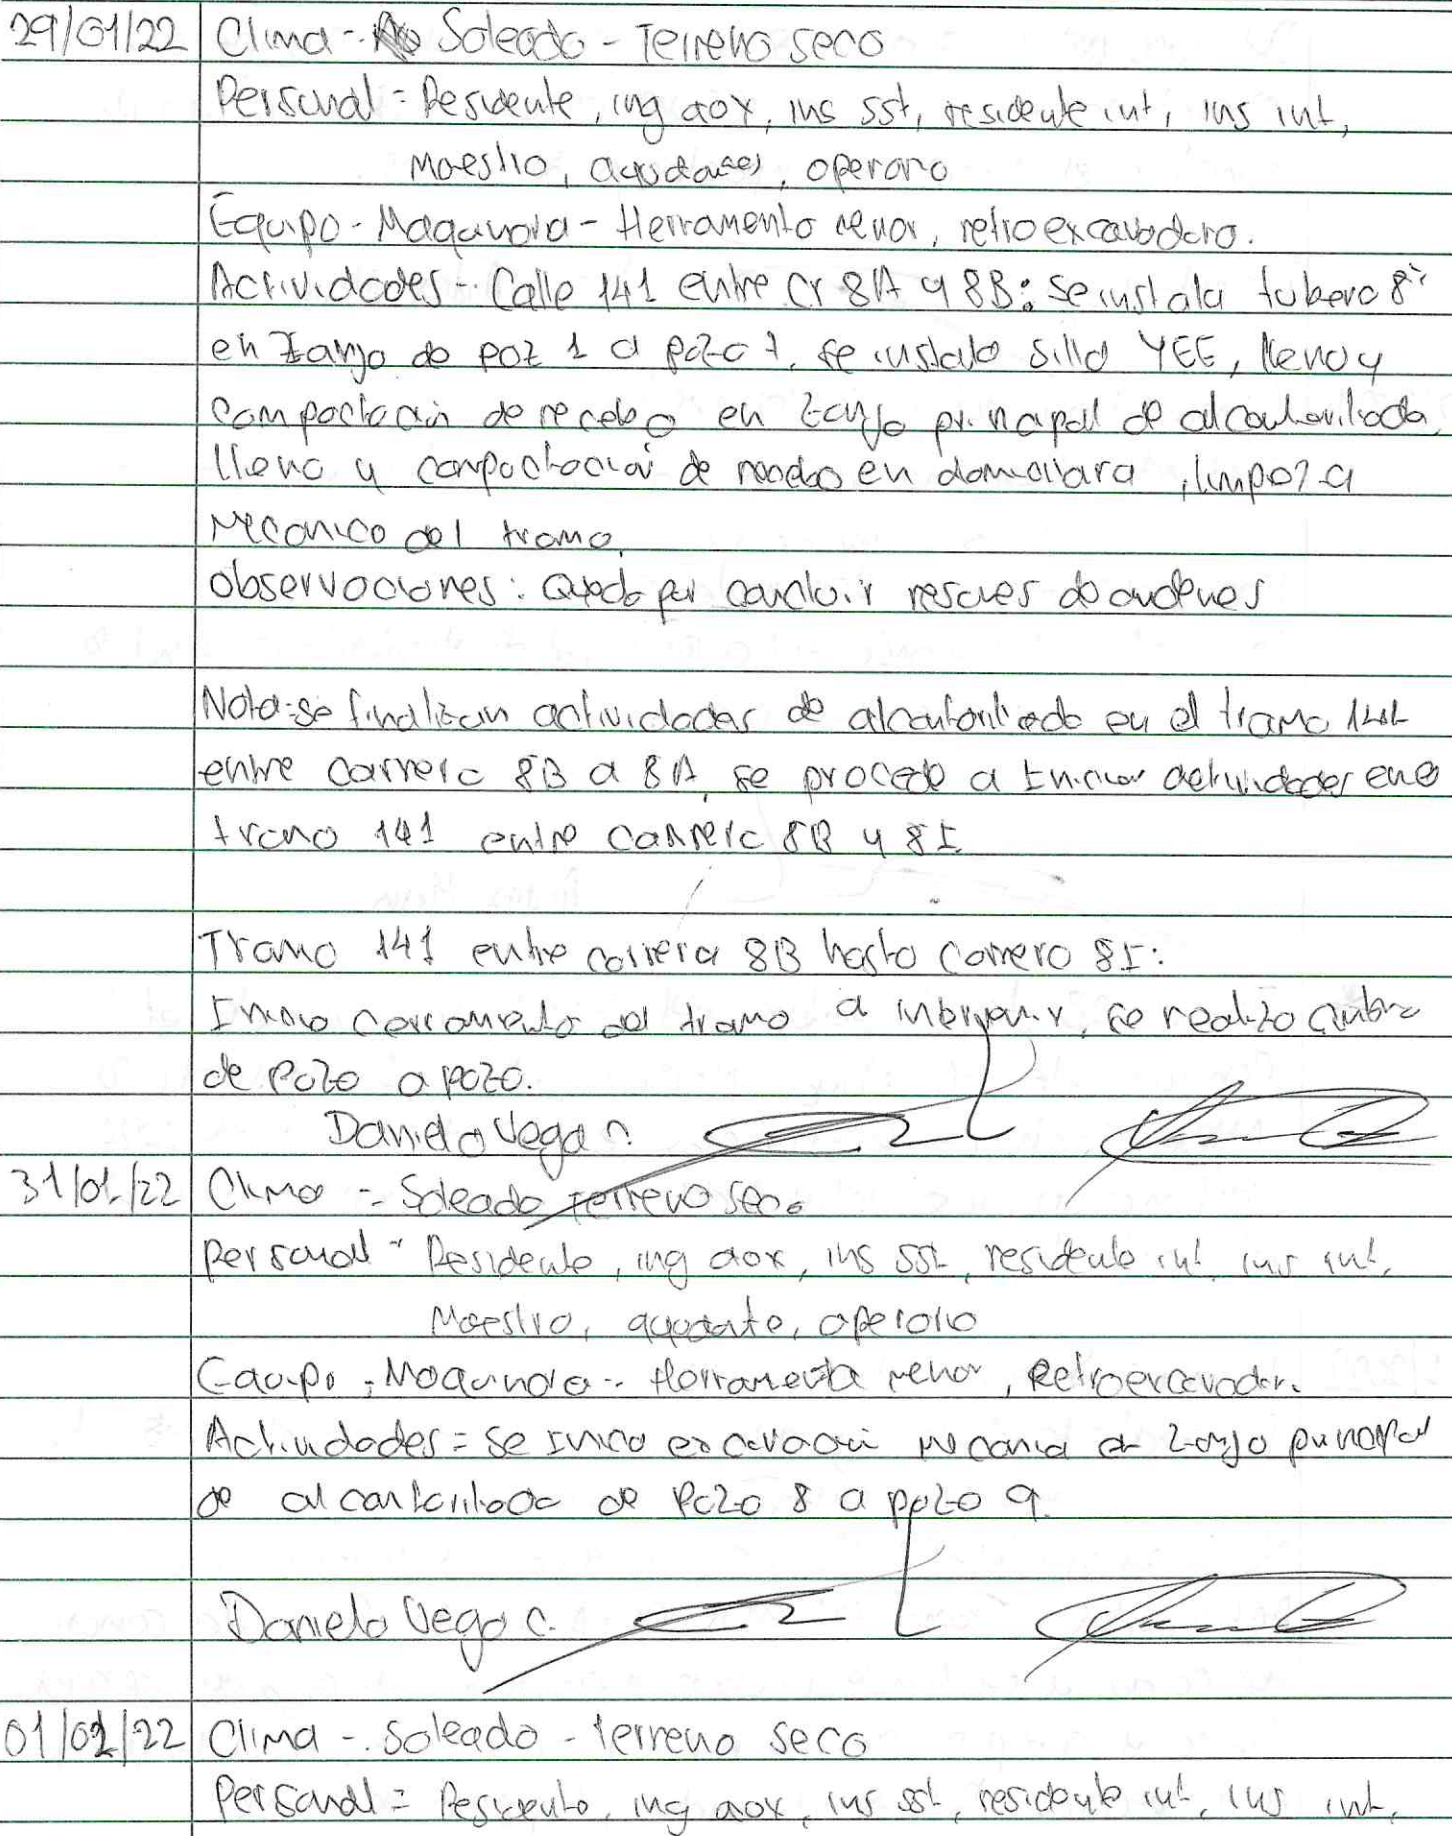 29/01/22 Clima - Soleado - Terreno seco
Personal = Residente, ing aux, ins sst, residente int, ins int,
Maestro, ayudantes, operario
Equipo - Maquinaria - Herramienta menor, retroexcavadora.
Actividades - Calle 141 entre Cr 8A y 8B: se instala tuberia 8"
en zanja de poz 1 a pozo 7, se instalo silla YEE, lleno y
compactacion de recebo en zanja principal de alcantarillado,
lleno y compactacion de recebo en domiciliaria, limpieza
mecanica del tramo.
Observaciones: Queda por concluir resanes de andenes
Nota: se finalizan actividades de alcantarillado en el tramo 141
entre carrera 8B a 8A, se procede a Iniciar actividades en e
tramo 141 entre carrera 8B y 8I
Tramo 141 entre carrera 8B hasta carrera 8I:
Inicio cerramiento del tramo a intervenir, se realizo
de pozo a pozo.
Daniela Vega C.
31/01/22 Clima - Soleado terreno seco
personal - Residente, ing aux, ins SST, residente int, ins int,
Maestro, ayudante, operario
Equipo, Maquinaria - Herramienta menor, Retroexcavador.
Actividades = se Inicio excavacion mecanica de zanja principal
de alcantarillado de Pozo 8 a pozo 9.
Daniela Vega C.
01/02/22 Clima - Soleado - terreno seco
Personal = Residente, ing aux, ins sst, residente int, ins int,